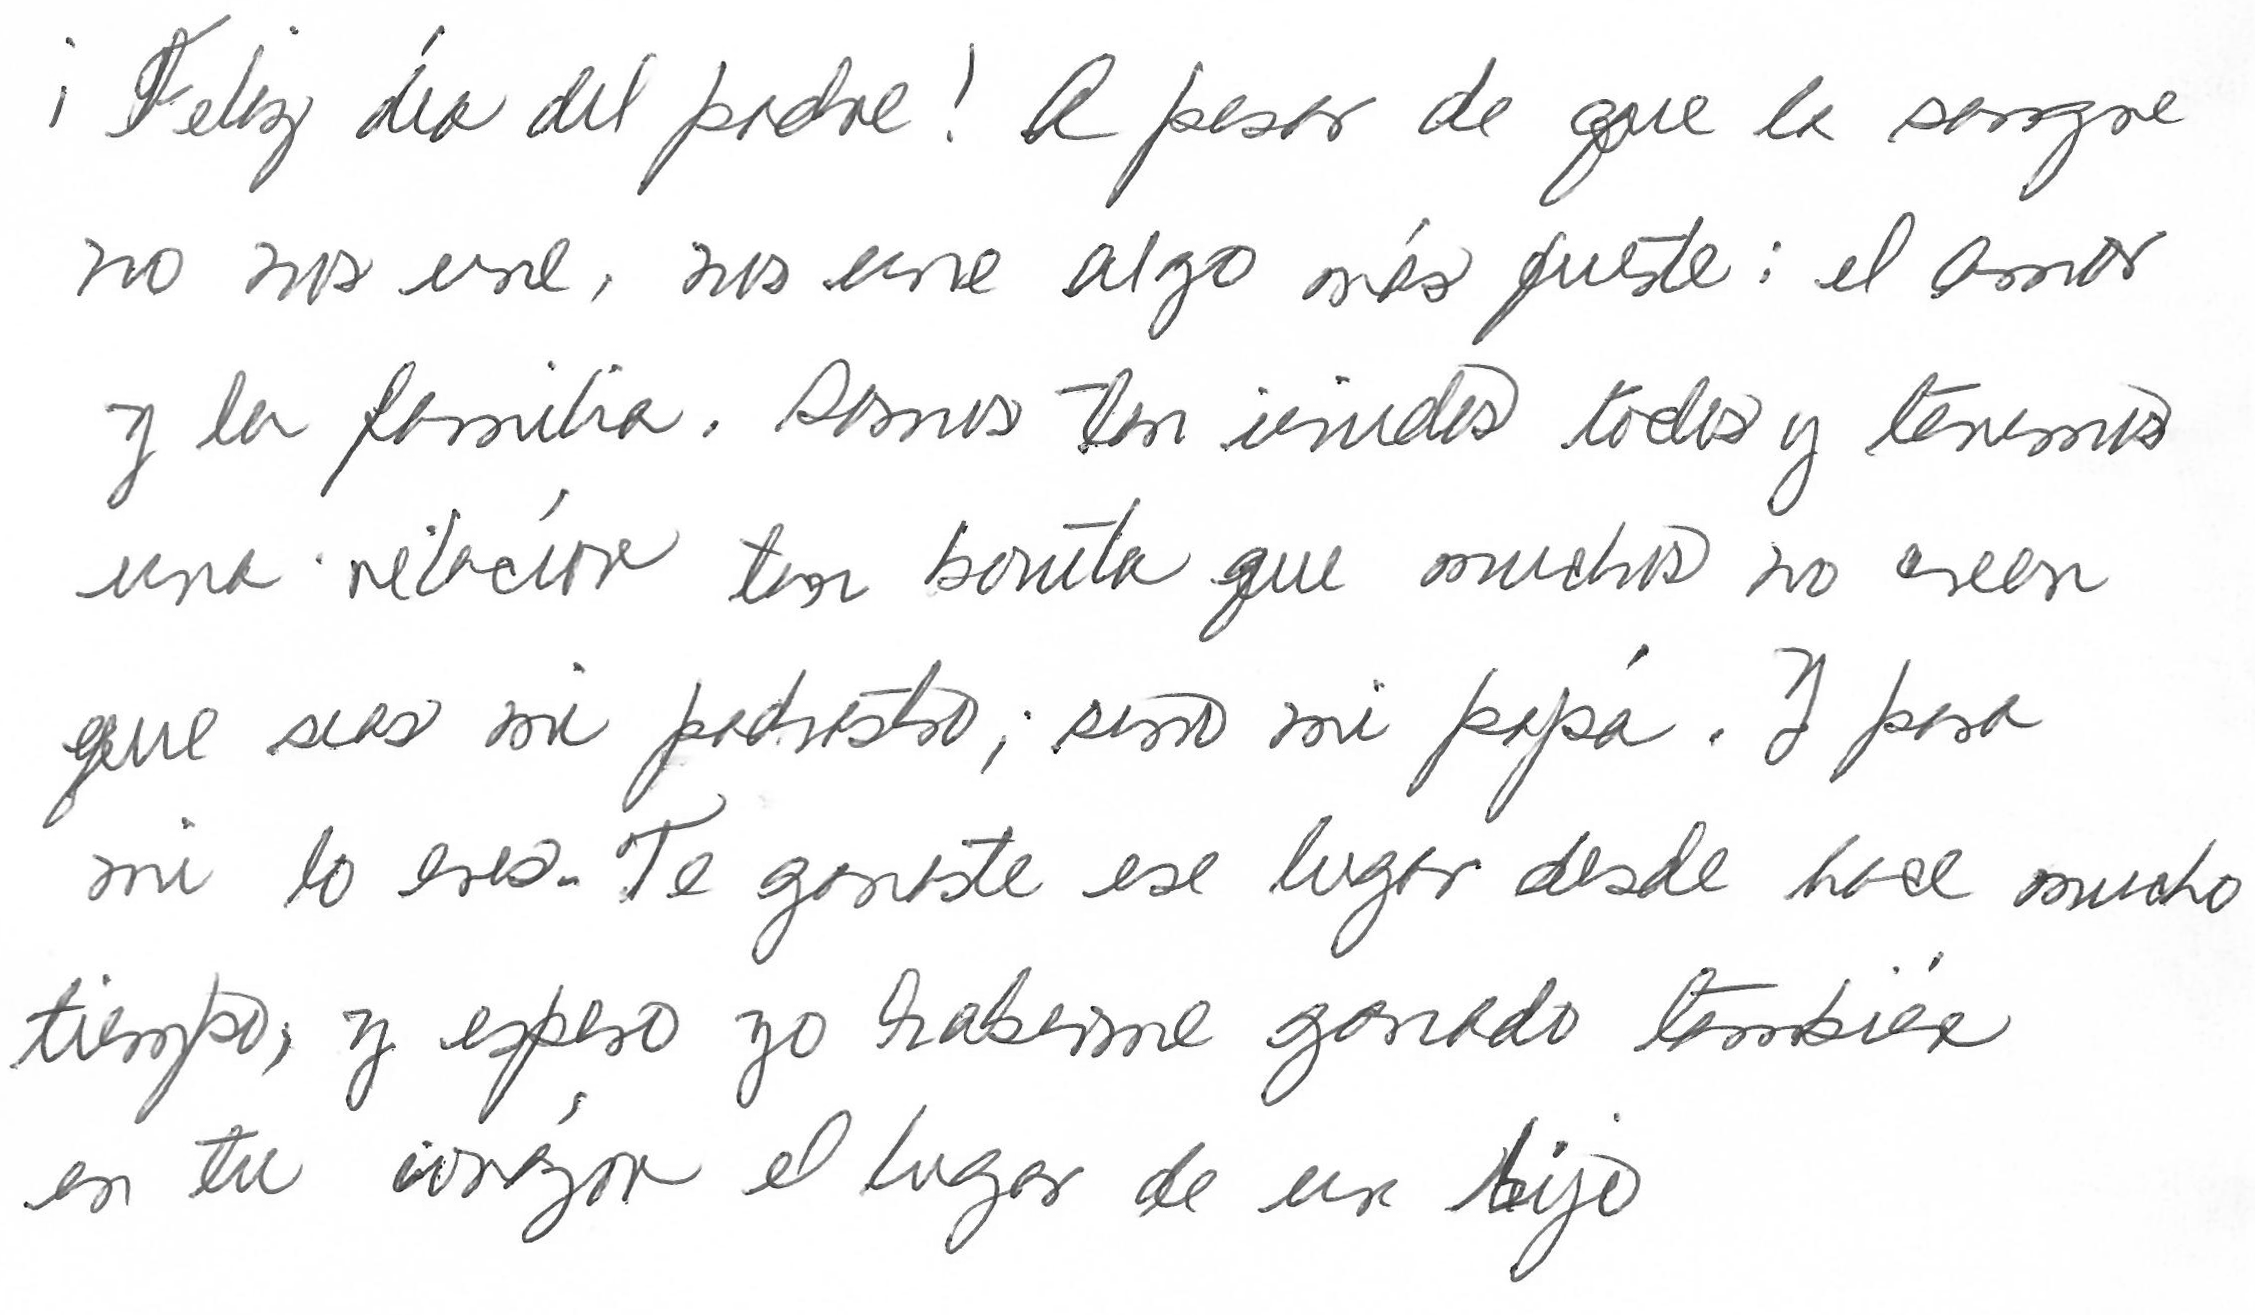 ¡Feliz día del padre! A pesar de que la sangre
no nos une, nos une algo más fuerte: el amor
y la familia. Somos tan unidos todos y tenemos
una relación tan bonita que muchos no creen
que seas mi padrastro, sino mi papá. Y para
mi lo eres. Te ganaste ese lugar desde hace mucho
tiempo, y espero yo haberme ganado también
en tu corazón el lugar de un hijo